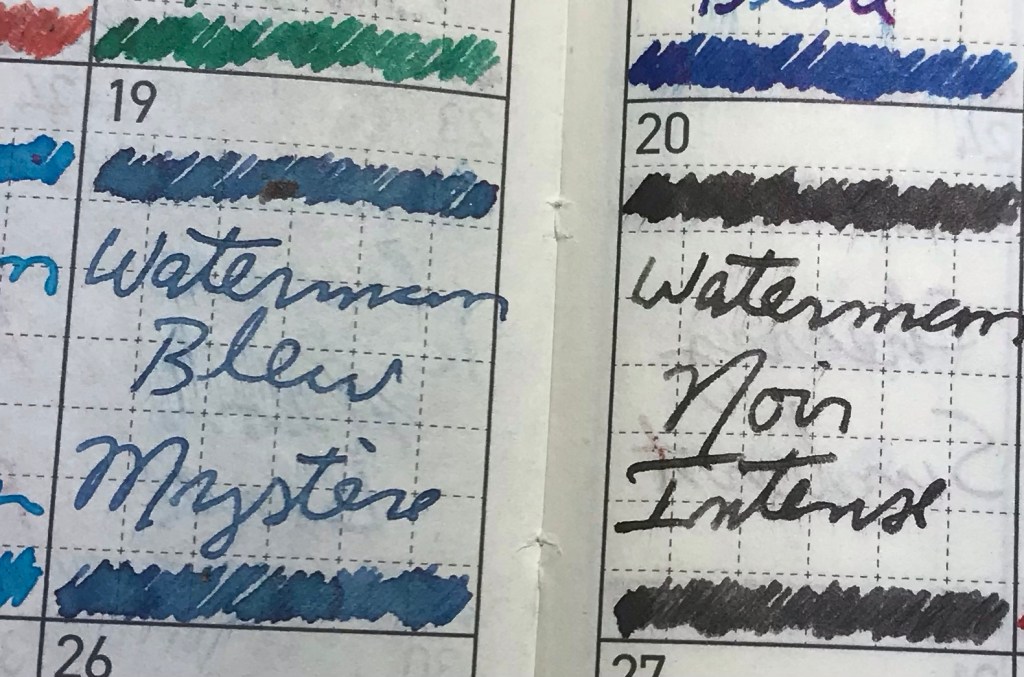 19
Waterman
Bleu
Mystère
26
20
Waterman
Noir
Intense
27